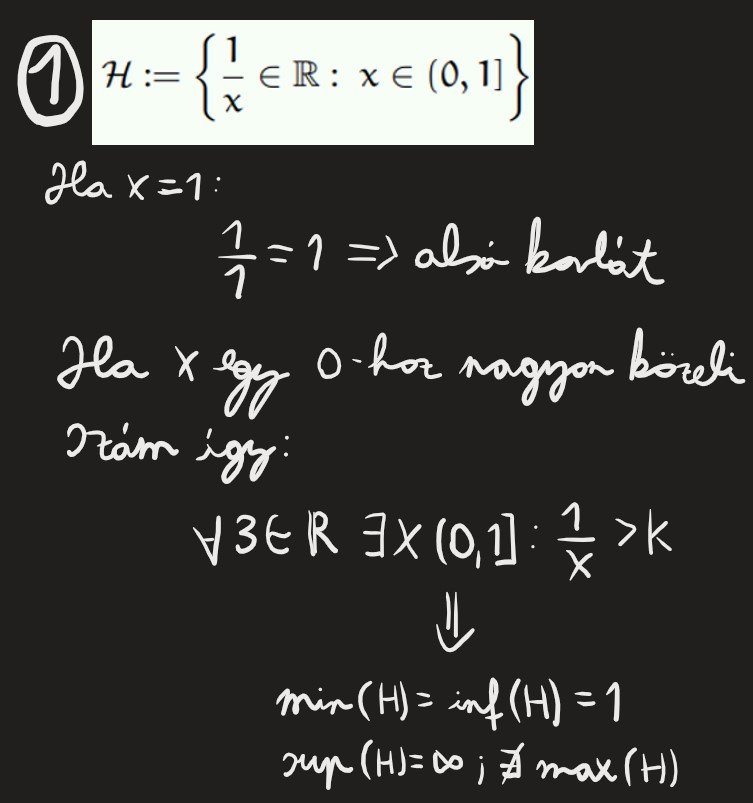 ① H := { 1/x ∈ ℝ : x ∈ (0, 1] }
Ha x=1:
1/1 = 1 => alsó korlát
Ha x egy 0-hoz nagyon közeli
szám így:
∀ 3 ∈ ℝ ∃ x (0,1] : 1/x > k
⇓
min(H) = inf(H) = 1
sup(H) = ∞ ; ∄ max(H)